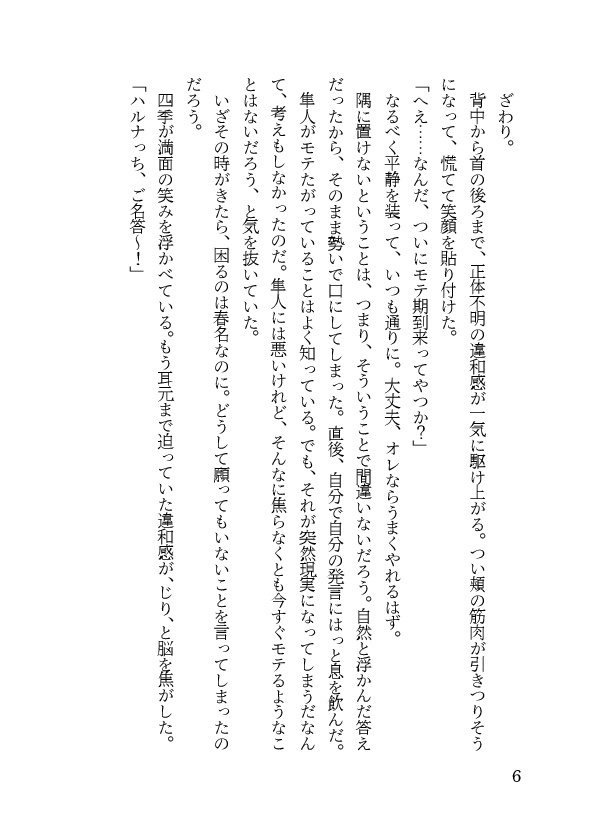 ざわり。
背中から首の後ろまで、正体不明の違和感が一気に駆け上がる。つい頬の筋肉が引きつりそう
になって、慌てて笑顔を貼り付けた。
「へえ……なんだ、ついにモテ期到来ってやつか？」
なるべく平静を装って、いつも通りに。大丈夫、オレならうまくやれるはず。
隅に置けないということは、つまり、そういうことで間違いないだろう。自然と浮かんだ答え
だったから、そのまま勢いで口にしてしまった。直後、自分で自分の発言にはっと息を飲んだ。
隼人がモテたがっていることはよく知っている。でも、それが突然現実になってしまうだなん
て、考えもしなかったのだ。隼人には悪いけれど、そんなに焦らなくとも今すぐモテるようなこ
とはないだろう、と気を抜いていた。
いざその時がきたら、困るのは春名なのに。どうして願ってもいないことを言ってしまったの
だろう。
四季が満面の笑みを浮かべている。もう耳元まで迫っていた違和感が、じり、と脳を焦がした。
「ハルナっち、ご名答〜！」
6